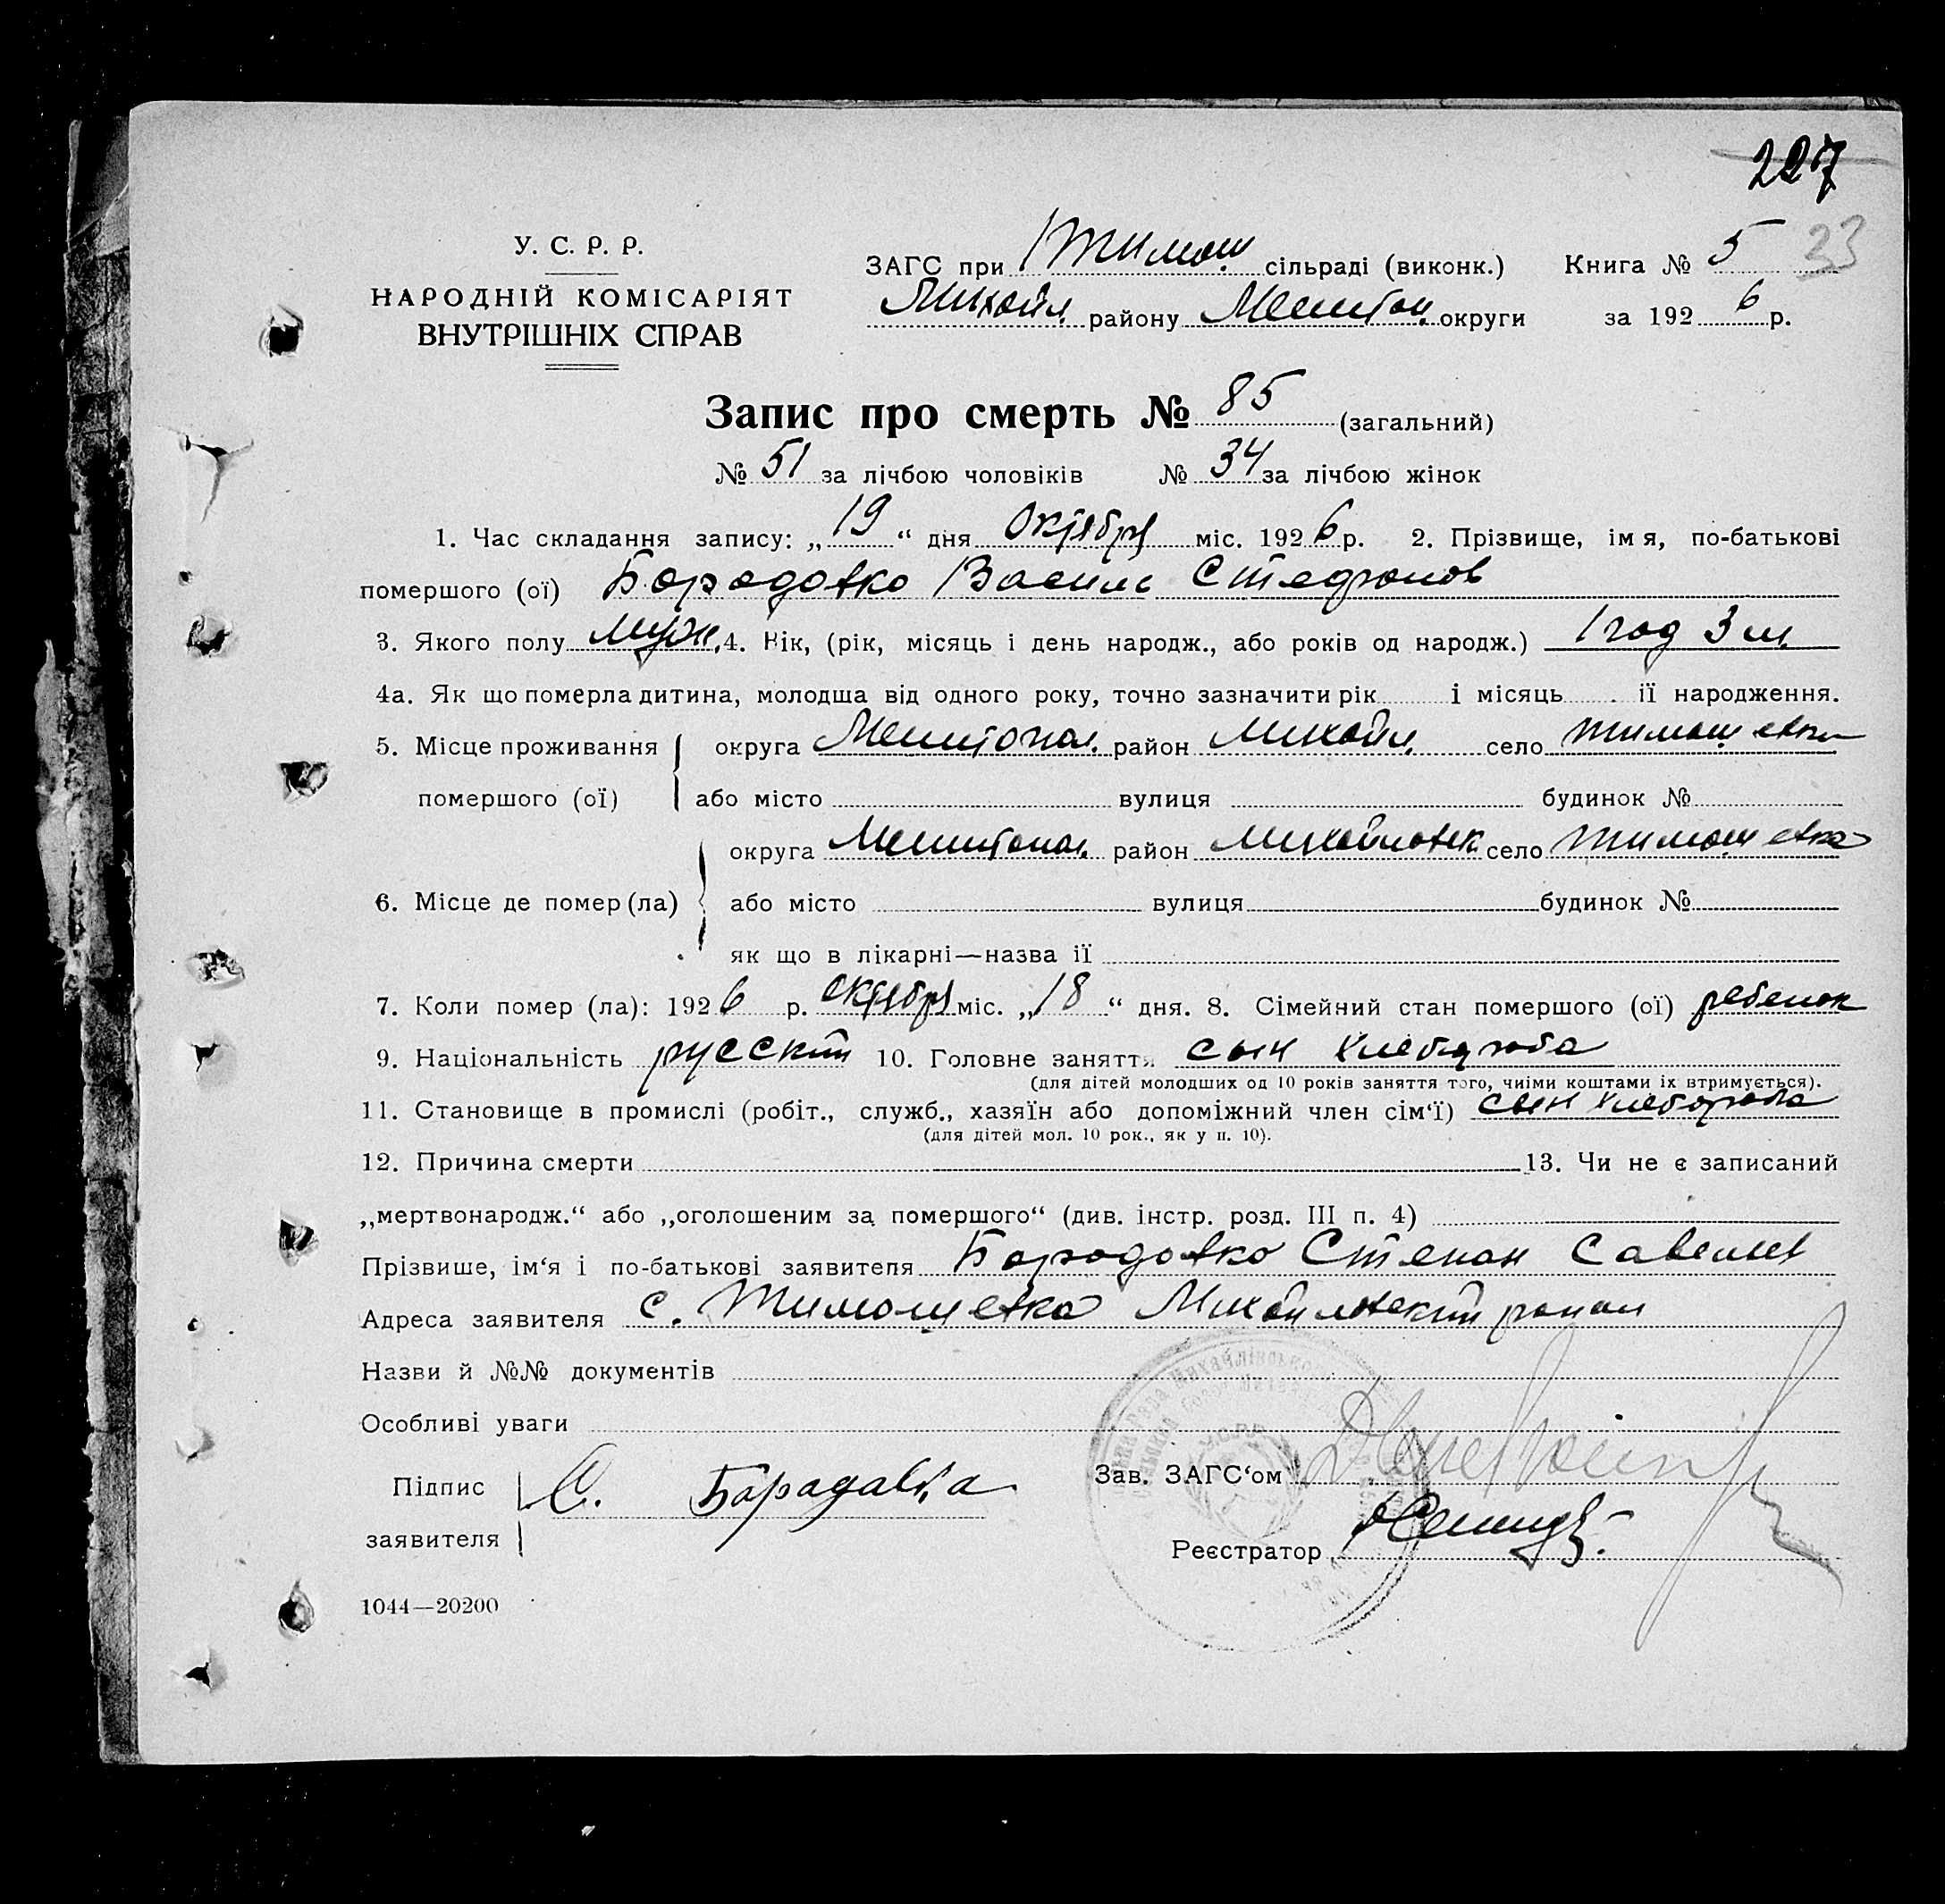 227
У. С. Р. Р.
НАРОДНІЙ КОМІСАРІЯТ
ВНУТРІШНІХ СПРАВ
ЗАГС при Тимош сільраді (виконк.) Книга № 5 23
Михайл. району Мелитоп. округи за 1926 р.
Запис про смерть № 85 (загальний)
№ 51 за лічбою чоловіків № 34 за лічбою жінок
1. Час складання запису: „19“ дня Октября міс. 1926 р. 2. Прізвище, імя, по-батькові
помершого (ої) Бородавко Василь Стефанов
3. Якого полу муж. 4. Вік, (рік, місяць і день народж., або років од народж.) 1 год 3 м.
4а. Як що померла дитина, молодша від одного року, точно зазначити рік і місяць її народження.
5. Місце проживання округа Мелитопол. район Михайл. село Тимошевка
помершого (ої) або місто вулиця будинок №
округа Мелитопол. район Михайловск. село Тимошевка
6. Місце де помер (ла) або місто вулиця будинок №
як що в лікарні—назва ії
7. Коли помер (ла): 1926 р. октября міс. „18“ дня. 8. Сімейний стан помершого (ої) ребенок
9. Національність русский 10. Головне заняття сын хлебороба
(для дітей молодших од 10 років заняття того, чиіми коштами їх втримується).
11. Становище в промислі (робіт., служб., хазяїн або допоміжний член сім‘ї) сын хлебороба
(для дітей мол. 10 рок., як у п. 10).
12. Причина смерти 13. Чи не є записаний
„мертвонародж.“ або „оголошеним за помершого“ (див. інстр. розд. III п. 4)
Прізвише, ім‘я і по-батькові заявителя Бородавко Степан Савельев
Адреса заявителя с. Тимошевка Михайловский район
Назви й №№ документів
Особливі уваги
Підпис С. Барадавка
заявителя
Зав. ЗАГС‘ом
Реєстратор
1044—20200